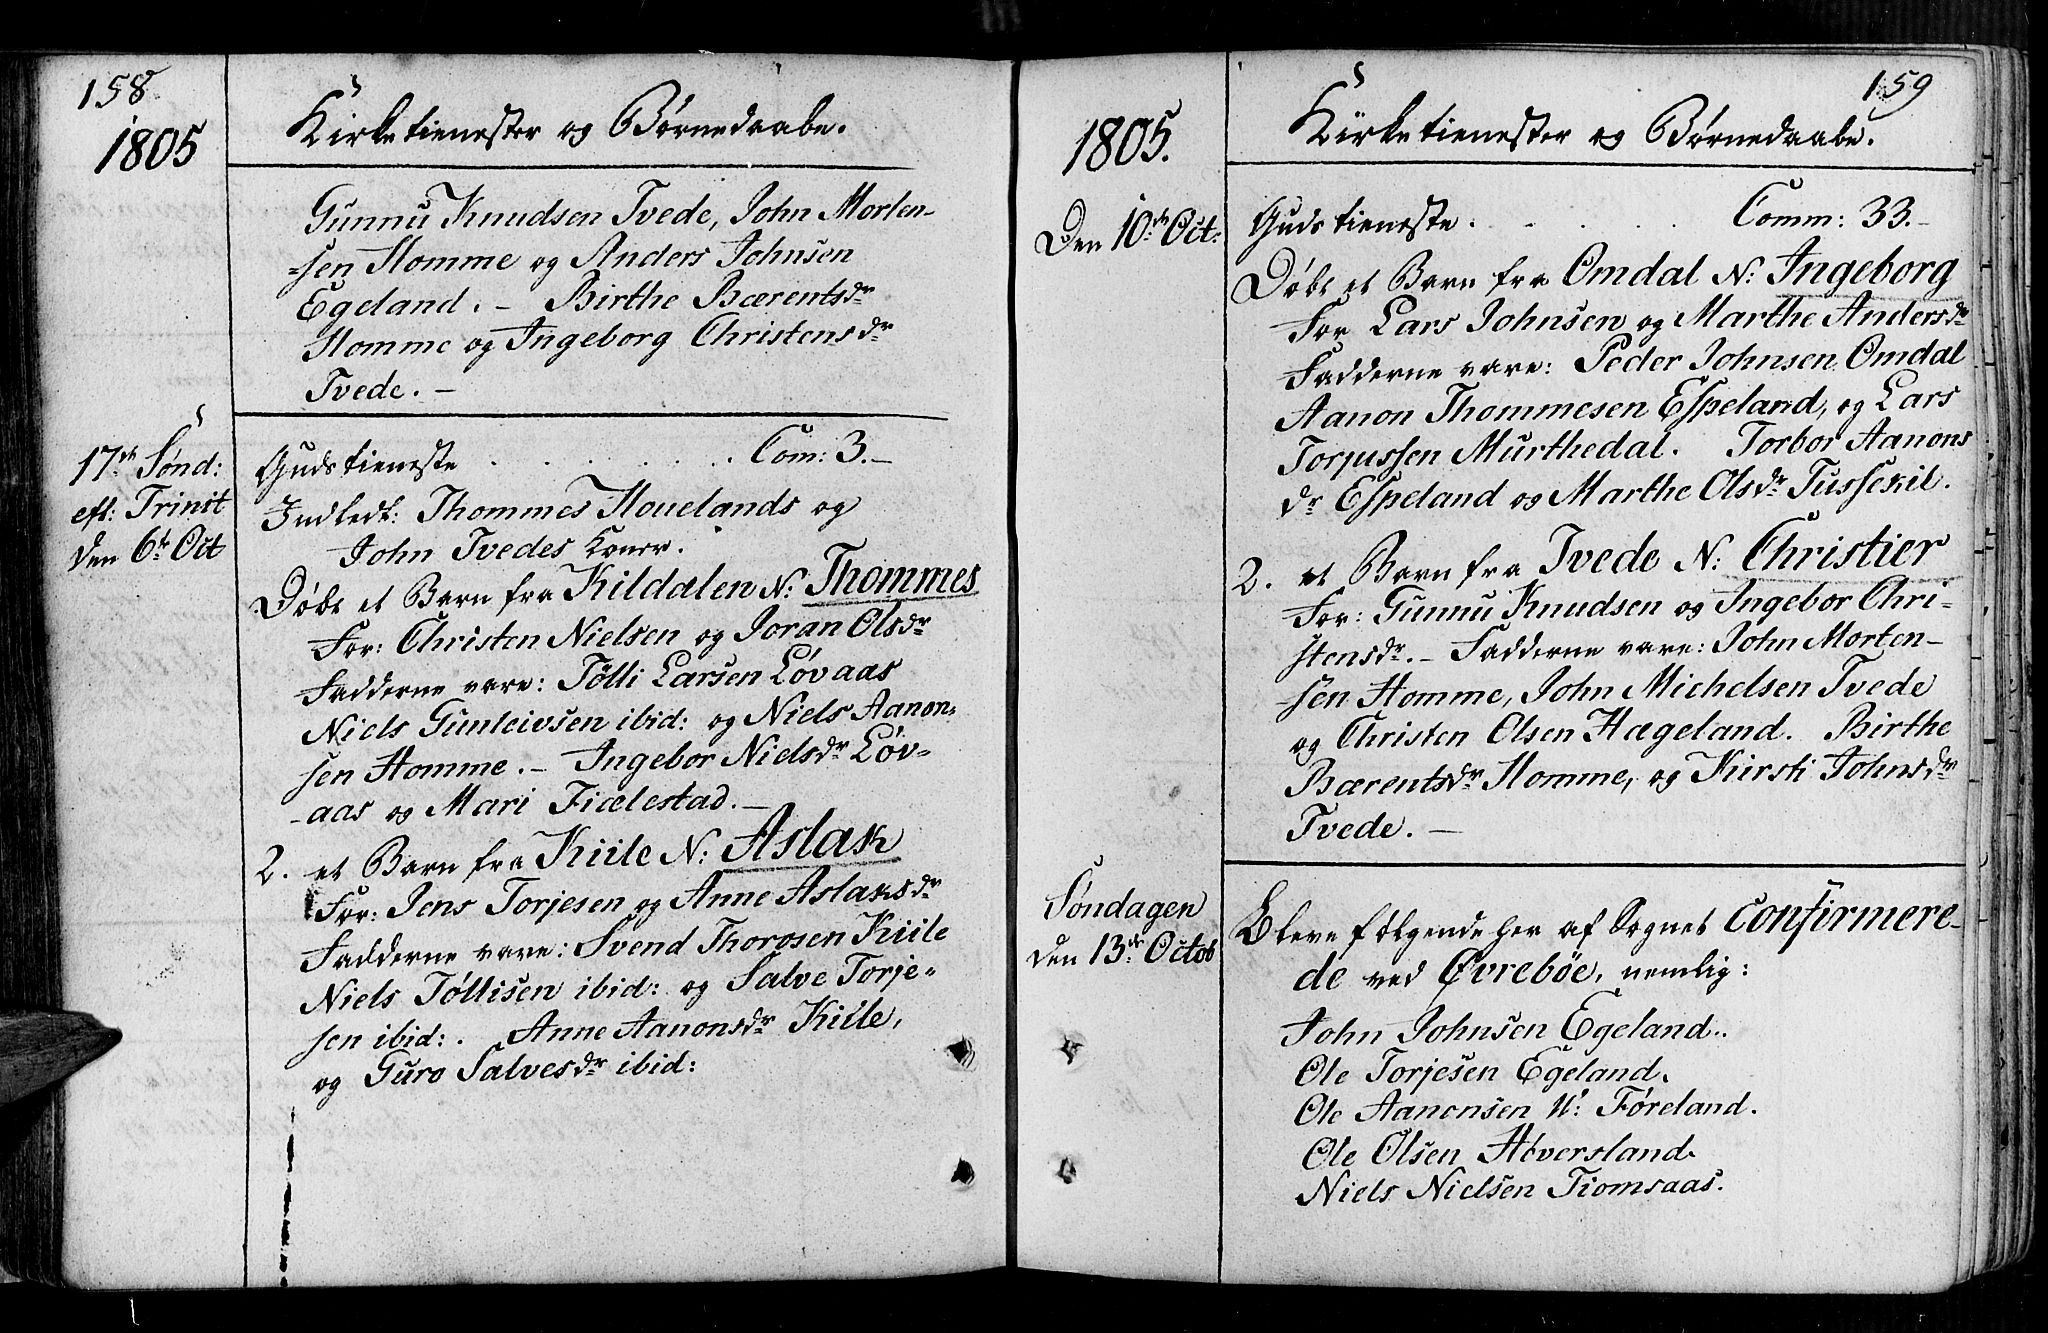 158
1805
Kirketienester og Børnedaabe.
Gunnu Knudsen Tvede, John Morten-
-sen Homme og Anders Johnsen
Egeland. - Birthe Bærentsdr
Homme og Ingeborg Christensdr
Tvede. -
17de Sønd:
eft: Trinit
den 6te Oct
Gudstieneste . . . . . . . Com: 3. -
Indledt: Thommes Houelands og
John Tvedes Koner.
Døbt et Barn fra Kildalen N: Thommes
For: Christen Nielsen og Joran Olsdr
Fadderne vare: Tølli Larsen Løvaas
Niels Gunleivsen ibid: og Niels Aanon-
sen Homme. - Ingebor Nielsdr Løv-
-aas og Mari Fiælestad. -
2. et Barn fra Kiile N: Aslak
For: Jens Torjesen og Anne Aslaksdr
Fadderne vare: Svend Thorosen Kiile
Niels Tøllisen ibid: og Salve Torje-
sen ibid: . Anne Aanonsdr Kiile,
og Guro Salvesdr ibid:
159
1805.
Kirketienester og Børnedaabe.
Den 10de Oct:
Gudstieneste . . . . . Comm: 33. -
Døbt et Barn fra Omdal N: Ingeborg
For Lars Johnsen og Marthe Andersdr
Fadderne vare: Peder Johnsen Omdal
Aanon Thommesen Espeland, og Lars
Torjussen Murthedal. Torbor Aanons
dr Espeland og Marthe Olsdr Tussekil.
2. et Barn fra Tvede N: Christier
For: Gunnu Knudsen og Ingebor Chri-
stensdr. - Fadderne vare: John Morten-
sen Homme, John Michelsen Tvede
og Christen Olsen Hægeland. Birthe
Bærentsdr Homme, og Kirsti Johnsdr
Tvede. -
Søndagen
den 13de Octob
Bleve følgende her af Sognet Confirmere-
de ved Øvrebøe, nemlig:
John Johnsen Egeland.
Ole Torjesen Egeland.
Ole Aanonsen N: Føreland.
Ole Olsen
Niels Nielsen Tiomsaas.